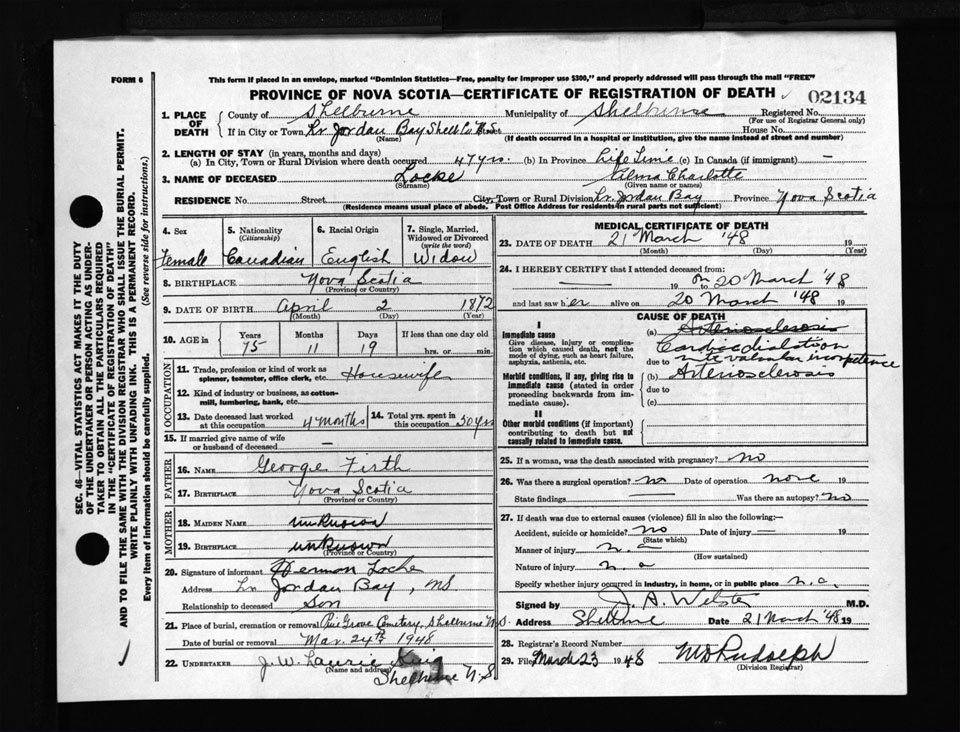 FORM 6
This form if placed in an envelope, marked "Dominion Statistics—Free, penalty for improper use $300," and properly addressed will pass through the mail "FREE"
PROVINCE OF NOVA SCOTIA—CERTIFICATE OF REGISTRATION OF DEATH 02134
1. PLACE OF DEATH County of Shelburne Municipality of Shelburne Registered No.
(For use of Registrar General only)
If in City or Town, Lr. Jordan Bay Shelb Co N.S. Street House No.
(Name) (If death occurred in a hospital or institution, give the name instead of street and number)
2. LENGTH OF STAY (in years, months and days)
(a) In City, Town or Rural Division where death occurred 47 yrs. (b) In Province Life Time (c) In Canada (if immigrant) —
3. NAME OF DECEASED Locke Vilma Charlotte
(Surname) (Given name or names)
RESIDENCE No. Street City, Town or Rural Division Lr. Jordan Bay Province Nova Scotia
(Residence means usual place of abode. Post Office Address for residents in rural parts not sufficient)
4. Sex 5. Nationality (Citizenship) 6. Racial Origin 7. Single, Married, Widowed or Divorced (write the word)
Female Canadian English Widow
8. BIRTHPLACE Nova Scotia
(Province or Country)
9. DATE OF BIRTH April 2 1872
(Month) (Day) (Year)
10. AGE in Years Months Days If less than one day old
75 11 19 hrs. or min.
OCCUPATION
11. Trade, profession or kind of work as spinner, teamster, office clerk, etc. Housewife
12. Kind of industry or business, as cotton-mill, lumbering, bank, etc.
13. Date deceased last worked at this occupation 4 months 14. Total yrs. spent in this occupation 50 yrs
15. If married give name of wife or husband of deceased —
FATHER
16. NAME George Firth
17. BIRTHPLACE Nova Scotia
(Province or Country)
MOTHER
18. MAIDEN NAME unknown
19. BIRTHPLACE unknown
(Province or Country)
20. Signature of informant Hermon Locke
Address Lr Jordan Bay, NS
Relationship to deceased Son
21. Place of burial, cremation or removal Pine Grove Cemetery, Shelburne N.S.
Date of burial or removal Mar. 24th 1948
22. UNDERTAKER J. W. Laurie
(Name and address) Shelburne N.S
MEDICAL CERTIFICATE OF DEATH
23. DATE OF DEATH 21 March '48 19
(Month) (Day) (Year)
24. I HEREBY CERTIFY that I attended deceased from:
— 19 on 20 March '48
and last saw her alive on 20 March '48 19
CAUSE OF DEATH
I
Immediate cause
Give disease, injury or complication which caused death, not the mode of dying, such as heart failure, asphyxia, asthenia, etc.
(a) Arteriosclerosis
Cardiac dilatation
due to intervalvular incompetence
Morbid conditions, if any, giving rise to immediate cause (stated in order proceeding backwards from immediate cause).
(b) Arteriosclerosis
due to
(c)
II
Other morbid conditions (if important) contributing to death but not causally related to immediate cause.
25. If a woman, was the death associated with pregnancy? no
26. Was there a surgical operation? no Date of operation none
State findings — Was there an autopsy? no
27. If death was due to external causes (violence) fill in also the following:—
Accident, suicide or homicide? no Date of injury — 19
(State which)
Manner of injury n. a
(How sustained)
Nature of injury n. a
Specify whether injury occurred in industry, in home, or in public place n.a.
Signed by J. A. Webster M.D.
Address Shelburne Date 21 March '48 19
28. Registrar's Record Number
29. Filed March 23 1948 M D Rudolph
(Division Registrar)
SEC. 46—VITAL STATISTICS ACT MAKES IT THE DUTY
OF THE UNDERTAKER OR PERSON ACTING AS UNDERTAKER TO OBTAIN ALL THE PARTICULARS REQUIRED
IN THE "CERTIFICATE OF REGISTRATION OF DEATH"
AND TO FILE THE SAME WITH THE DIVISION REGISTRAR WHO SHALL ISSUE THE BURIAL PERMIT.
WRITE PLAINLY WITH UNFADING INK. THIS IS A PERMANENT RECORD.
Every item of information should be carefully supplied. (See reverse side for instructions.)